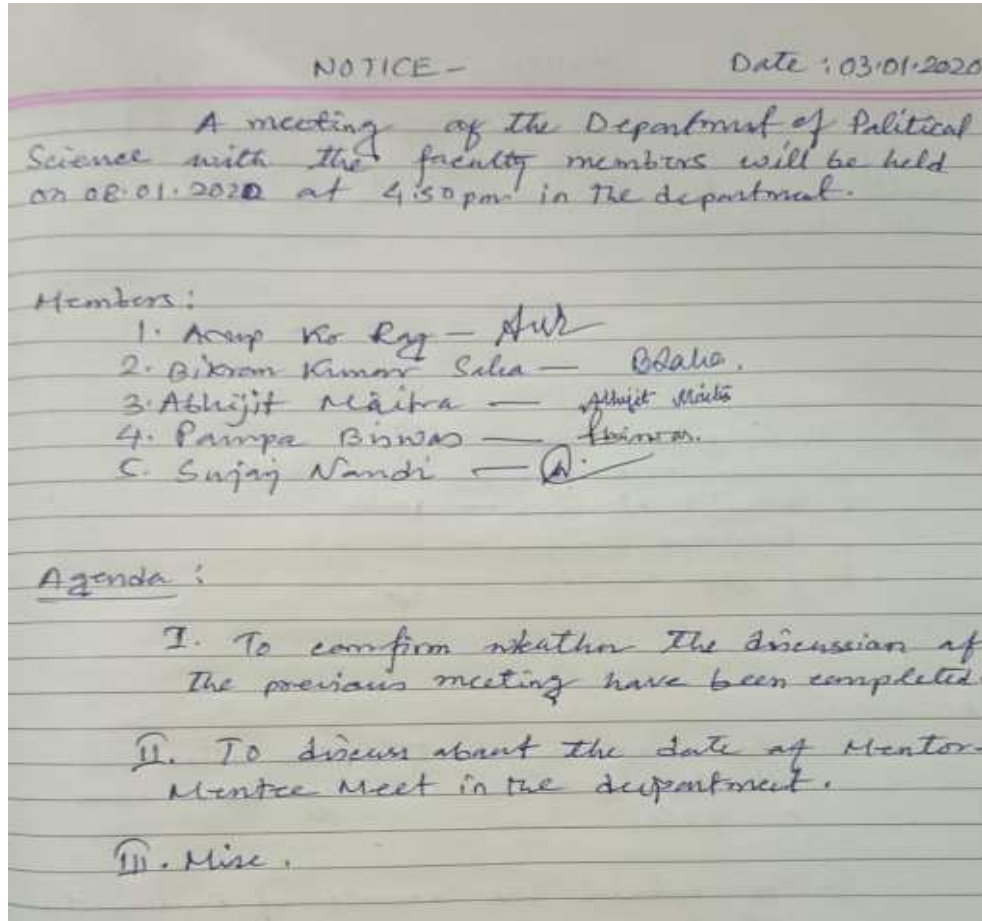 NOTICE - Date : 03.01.2020
A meeting of the Department of Political
Science with the faculty members will be held
on 08.01.2020 at 4:50 pm in the department.
Members :
1. Arup Kr Ray -
2. Bikram Kumar Saha - BSaha.
3. Abhijit Maitra - Abhijit Maitra
4. Pampa Biswas - PBiswas.
5. Sujay Nandi -
Agenda :
I. To comfirm wheather the discussion of
the previous meeting have been completed.
II. To discuss about the date of Mentor-
Mentee Meet in the department.
III. Misc.